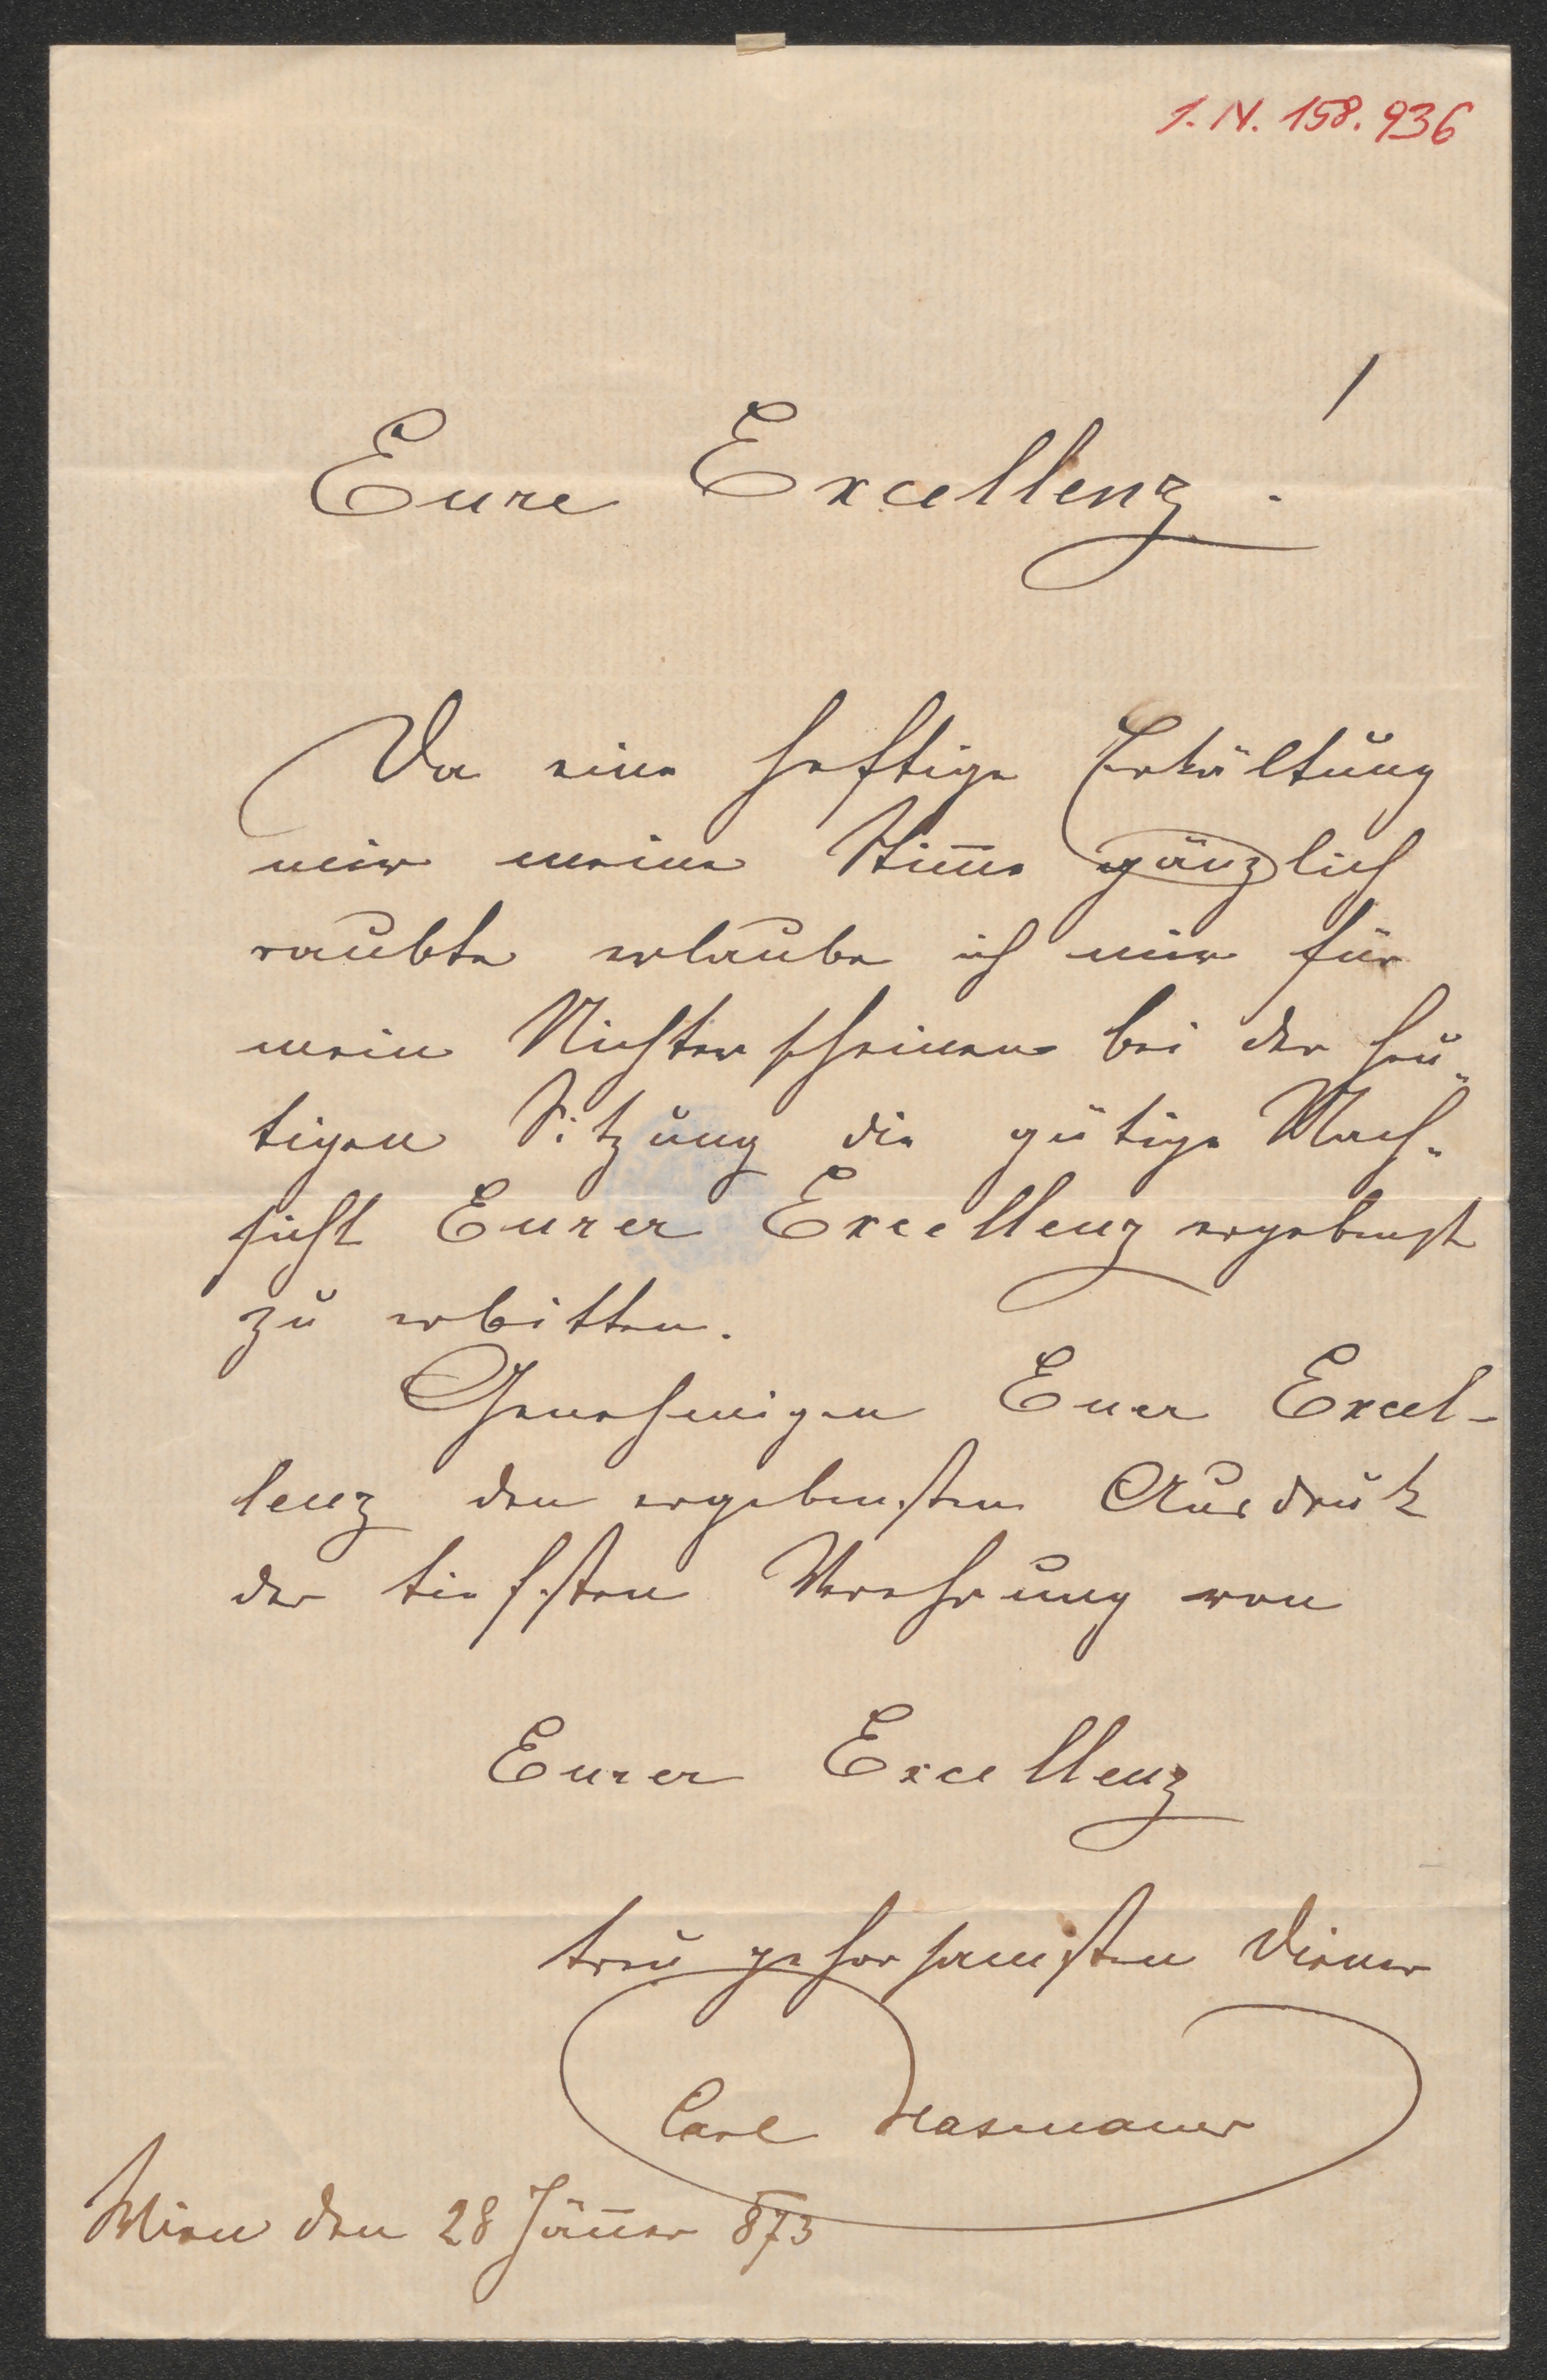 I. N. 158.936
Eure Excellenz!
Da eine heftige Erkältung
mir meine Stim̅e gänzlich
raubte erlaube ich mir für
mein Nichterscheinen bei der heu-
tigen Sitzung die gütige Nach-
sicht Eurer Excellenz ergebenst
zu erbitten.
Genehmigen Euer Excel-
lenz den ergebensten Ausdruk
der tiefsten Verehrung von
Eurer Excellenz
treu gehorsamsten Diener
Carl Hasenauer
Wien den 28 Jän̅er 873